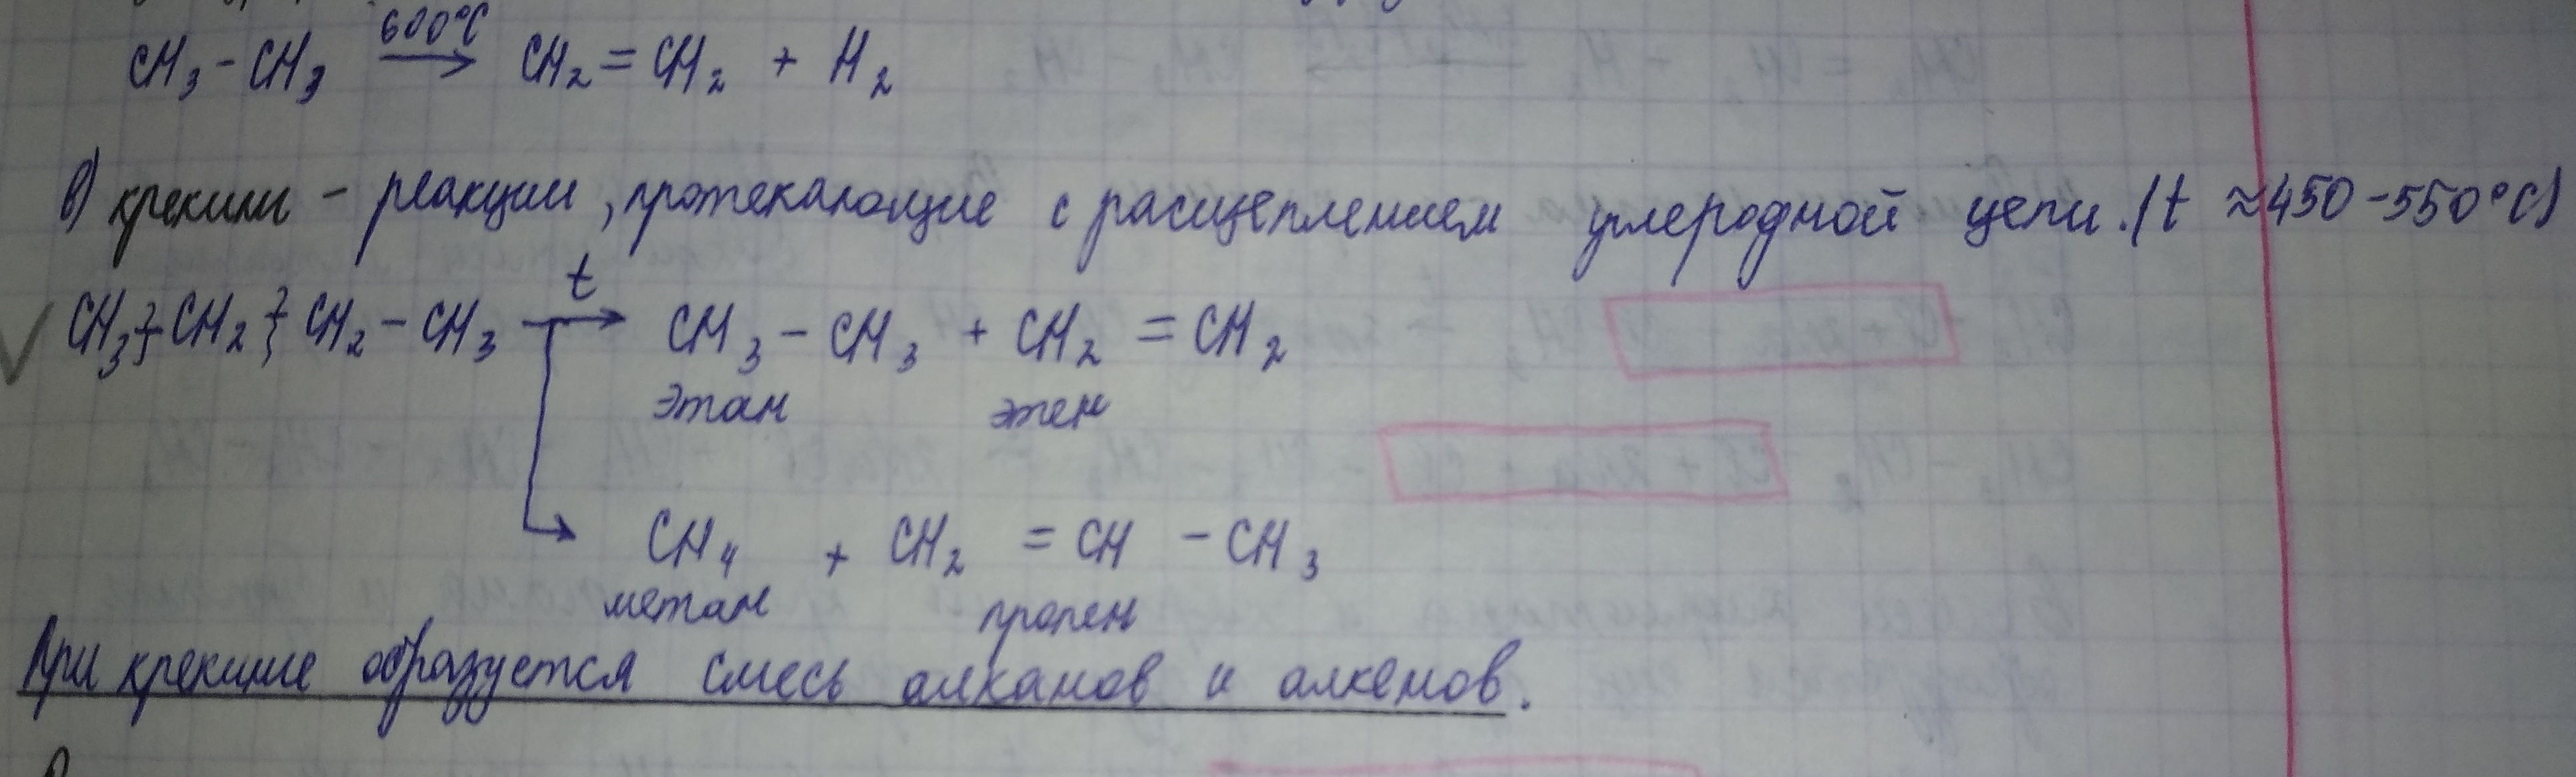 600°C
CH₃-CH₃ → CH₂=CH₂ + H₂
в) крекинг - реакции, протекающие с расщеплением углеродной цепи. (t ≈ 450-550°C)
t
CH₃ CH₂ CH₂-CH₃ → CH₃-CH₃ + CH₂=CH₂
этан этен
CH₄ + CH₂=CH-CH₃
метан пропен
При крекинге образуется смесь алканов и алкенов.